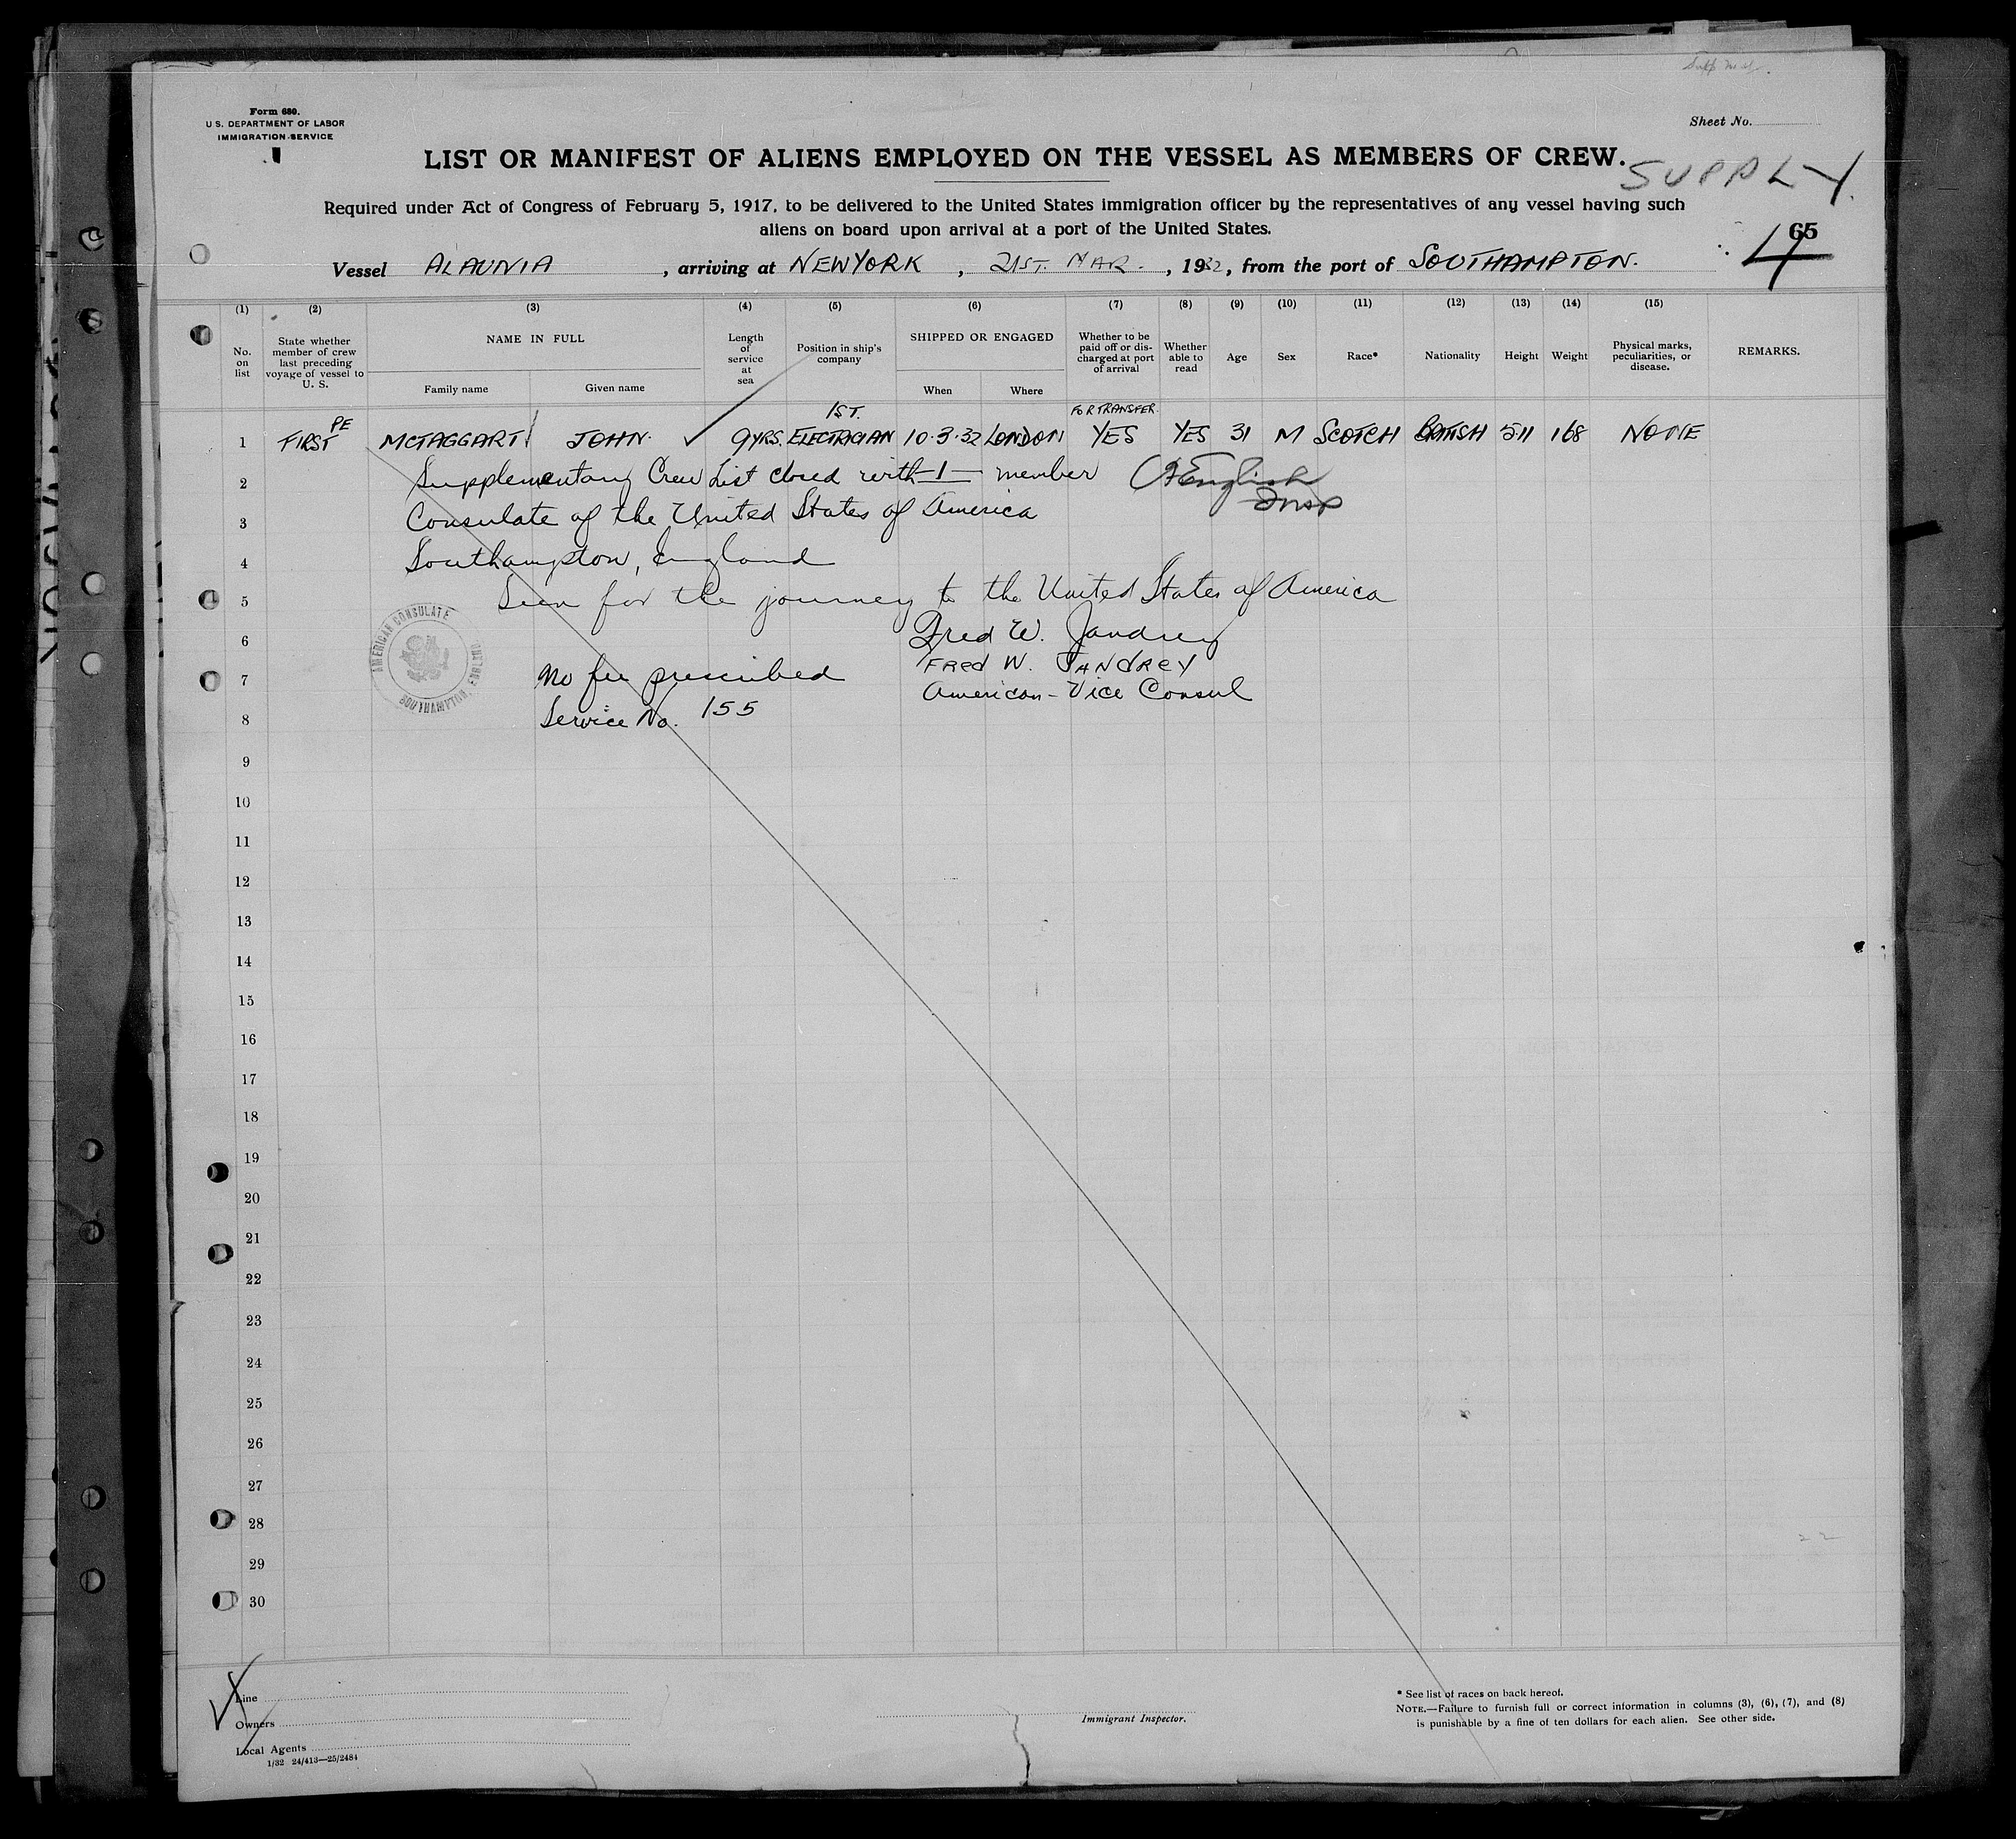 Form 680.
U.S. DEPARTMENT OF LABOR
IMMIGRATION SERVICE
Sheet No.
LIST OR MANIFEST OF ALIENS EMPLOYED ON THE VESSEL AS MEMBERS OF CREW.
SUPPLY.
Required under Act of Congress of February 5, 1917, to be delivered to the United States immigration officer by the representatives of any vessel having such
aliens on board upon arrival at a port of the United States.
65
4
Vessel ALAUNIA, arriving at NEW YORK, 21ST. MAR., 1932, from the port of SOUTHAMPTON.
(1) (2) (3) (4) (5) (6) (7) (8) (9) (10) (11) (12) (13) (14) (15)
No. on list
State whether member of crew last preceding voyage of vessel to U. S.
NAME IN FULL
Family name Given name
Length of service at sea
Position in ship's company
SHIPPED OR ENGAGED
When Where
Whether to be paid off or discharged at port of arrival
Whether able to read
Age Sex Race* Nationality Height Weight
Physical marks, peculiarities, or disease.
REMARKS.
1 FIRST PE MCTAGGART JOHN. 9 YRS. 1ST. ELECTRICIAN 10.3.32 LONDON FOR TRANSFER. YES YES 31 M SCOTCH BRITISH 5 11 168 NONE
2 Supplementary Crew List closed with —1— member English
Insp
3 Consulate of the United States of America
4 Southampton, England
5 Seen for the journey to the United States of America
6 Fred W. Jandrey
FRED W. JANDREY
7 No fee prescribed American Vice Consul
8 Service No. 155
AMERICAN CONSULATE
SOUTHAMPTON, ENGLAND
9
10
11
12
13
14
15
16
17
18
19
20
21
22
23
24
25
26
27
28
29
30
Line
Owners
Local Agents
1/32 24/413—25/2484
Immigrant Inspector.
* See list of races on back hereof.
NOTE.—Failure to furnish full or correct information in columns (3), (6), (7), and (8)
is punishable by a fine of ten dollars for each alien. See other side.